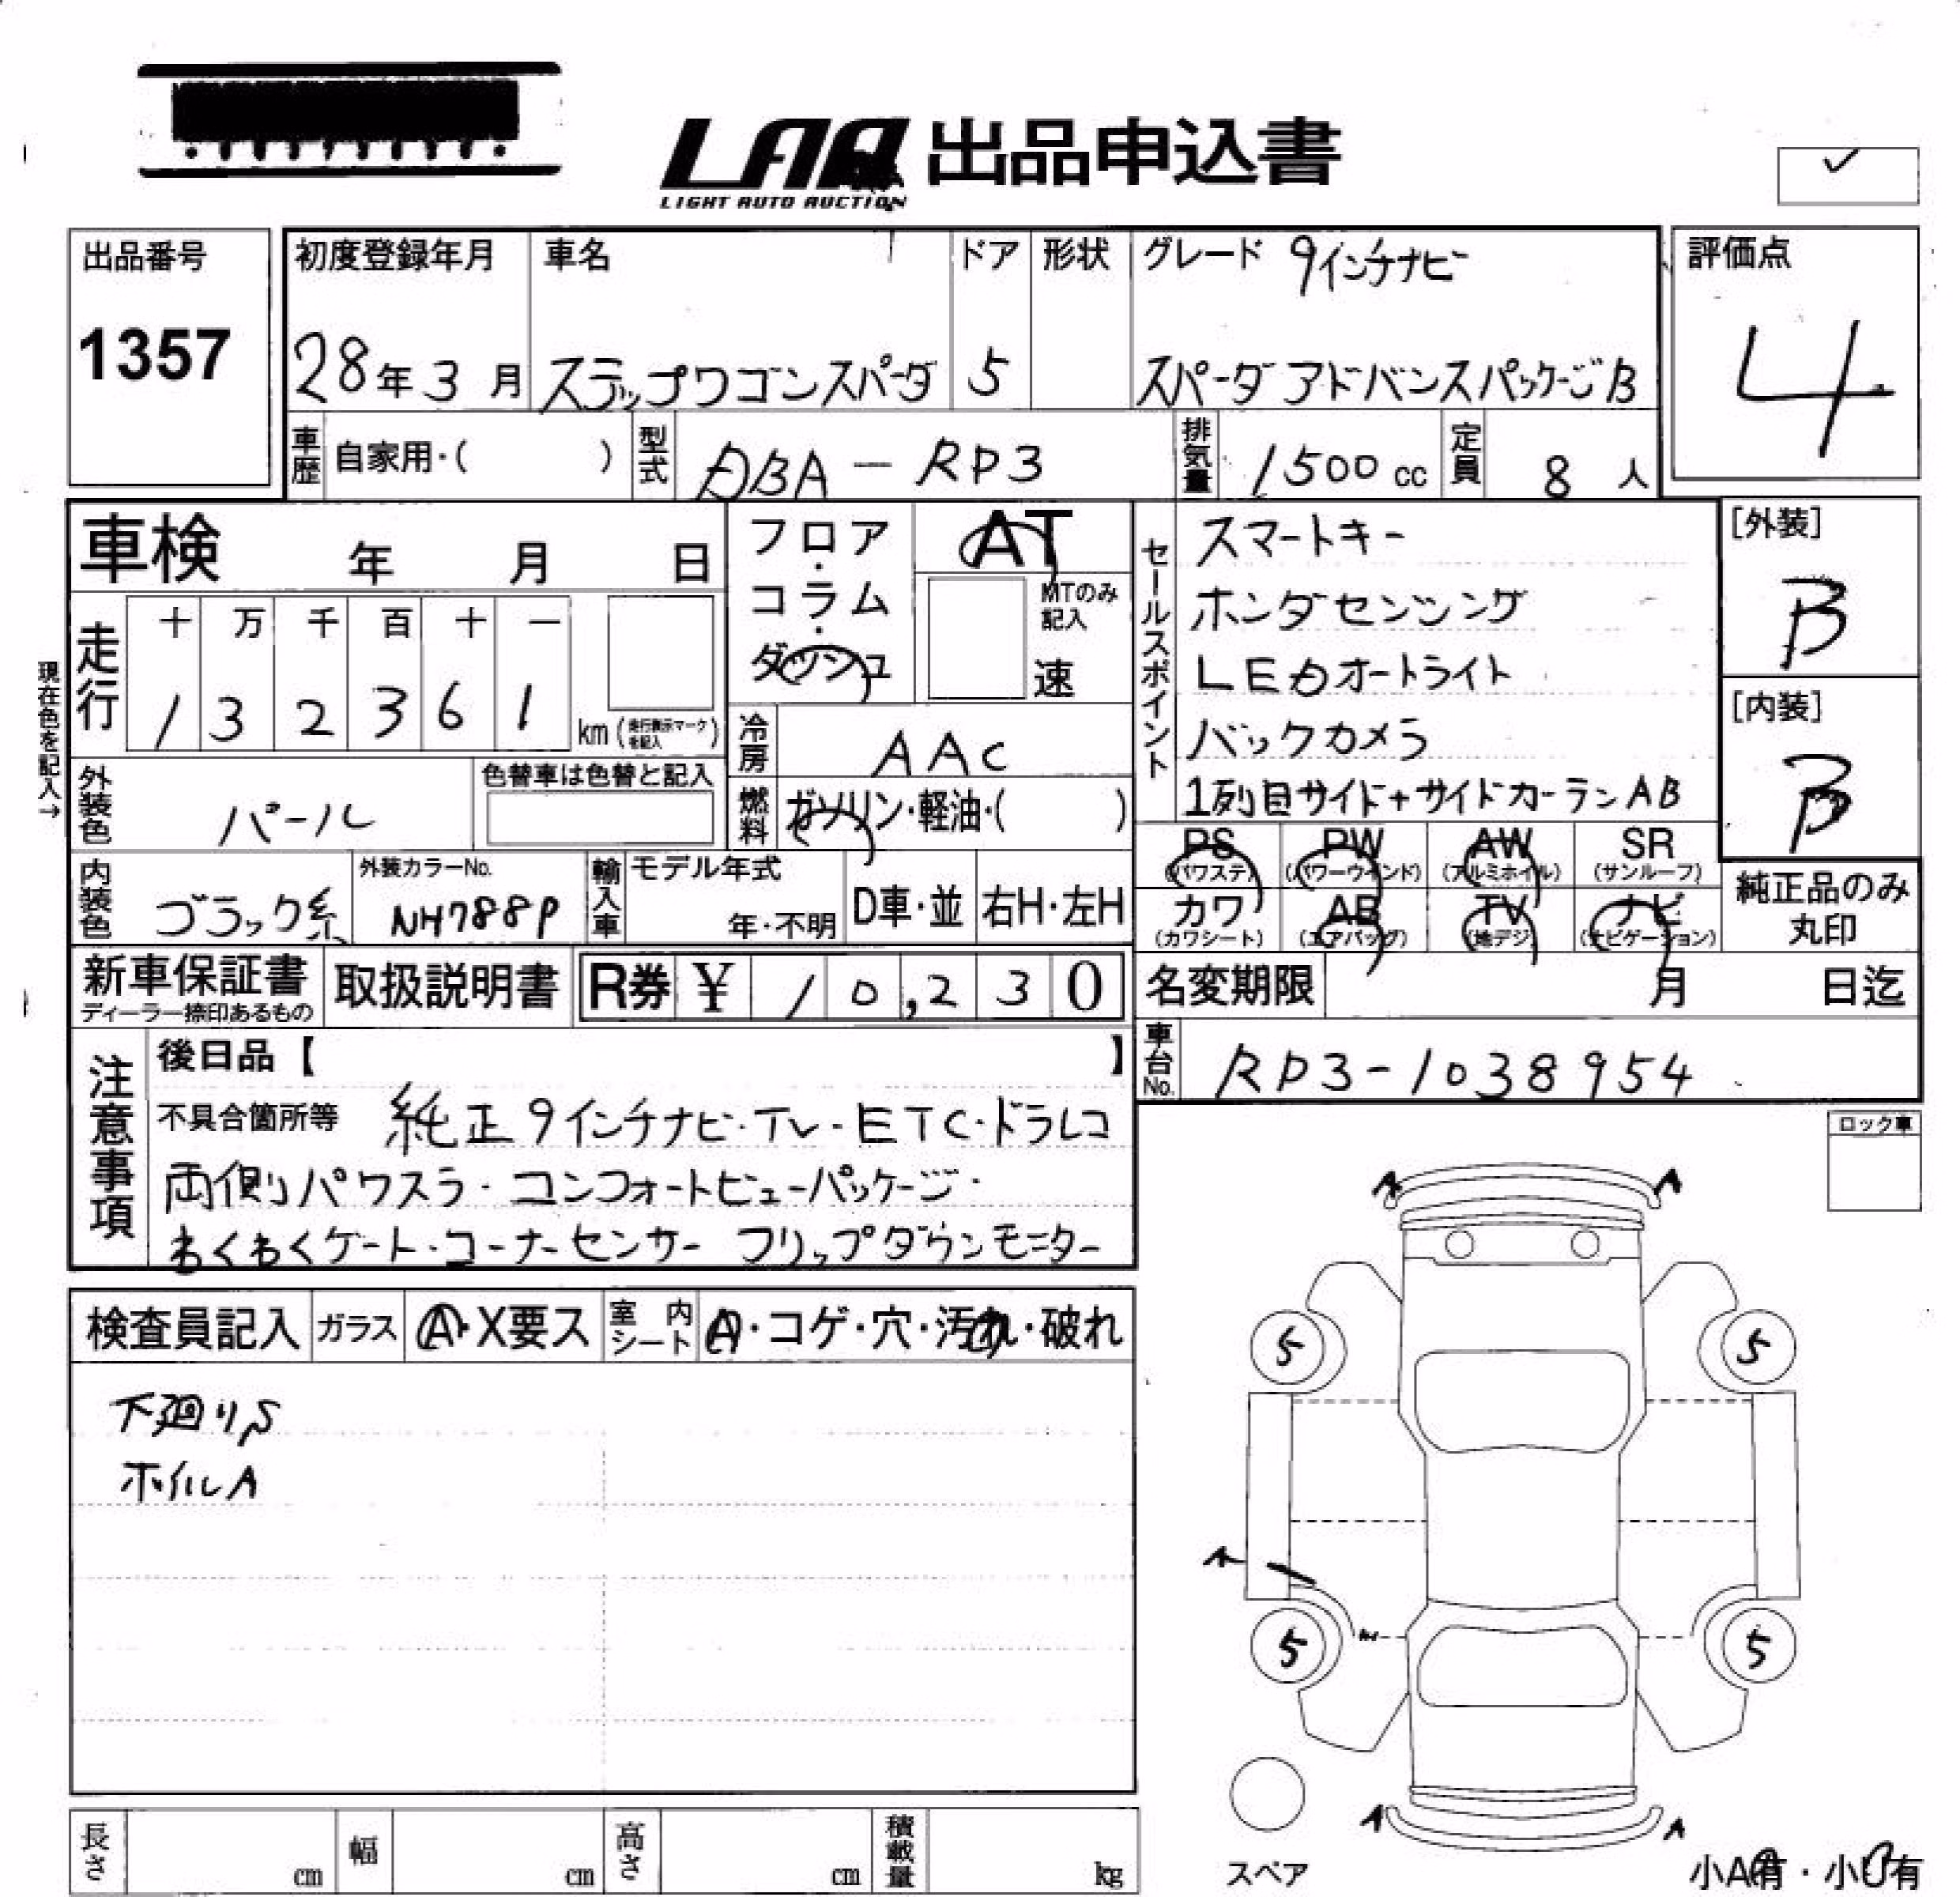 LAA 出品申込書
LIGHT AUTO AUCTION
出品番号
1357
初度登録年月
28年3月
車名
ステップワゴンスパーダ
ドア
5
形状
グレード 9インチナビ
スパーダ アドバンスパッケージB
評価点
4
車歴 自家用・( )
型式 DBA-RP3
排気量 1500cc
定員 8人
車検 年 月 日
フロア・コラム・ダッシュ
AT
MTのみ記入
速
セールスポイント
スマートキー
ホンダセンシング
LEDオートライト
バックカメラ
1列目サイド+サイドカーテンAB
[外装]
B
[内装]
B
現在色を記入→
走行
十 万 千 百 十 一
1 3 2 3 6 1 km (走行表示マークを記入)
冷房 AAC
燃料 ガソリン・軽油・( )
外装色 パール
色替車は色替と記入
内装色 ブラック系
外装カラーNo.
NH788P
輸入車
モデル年式
年・不明
D車・並
右H・左H
PS (パワステ)
PW (パワーウインド)
AW (アルミホイル)
SR (サンルーフ)
カワ (カワシート)
AB (エアバッグ)
TV (地デジ)
ナビ (ナビゲーション)
純正品のみ
丸印
新車保証書
ディーラー捺印あるもの
取扱説明書
R券 ¥ 10,230
名変期限 月 日迄
車台No. RP3-1038954
注意事項
後日品【 】
不具合箇所等 純正9インチナビ・TV・ETC・ドラレコ
両側パワスラ・コンフォートビューパッケージ・
わくわくゲート・コーナーセンサー フリップダウンモニター
ロック車
検査員記入
ガラス A・X要ス
室内シート A・コゲ・穴・汚れ・破れ
下廻りS
ホイルA
A A
5 5
A
5 5
A A
スペア
小A有・小U有
長さ cm
幅 cm
高さ cm
積載量 kg